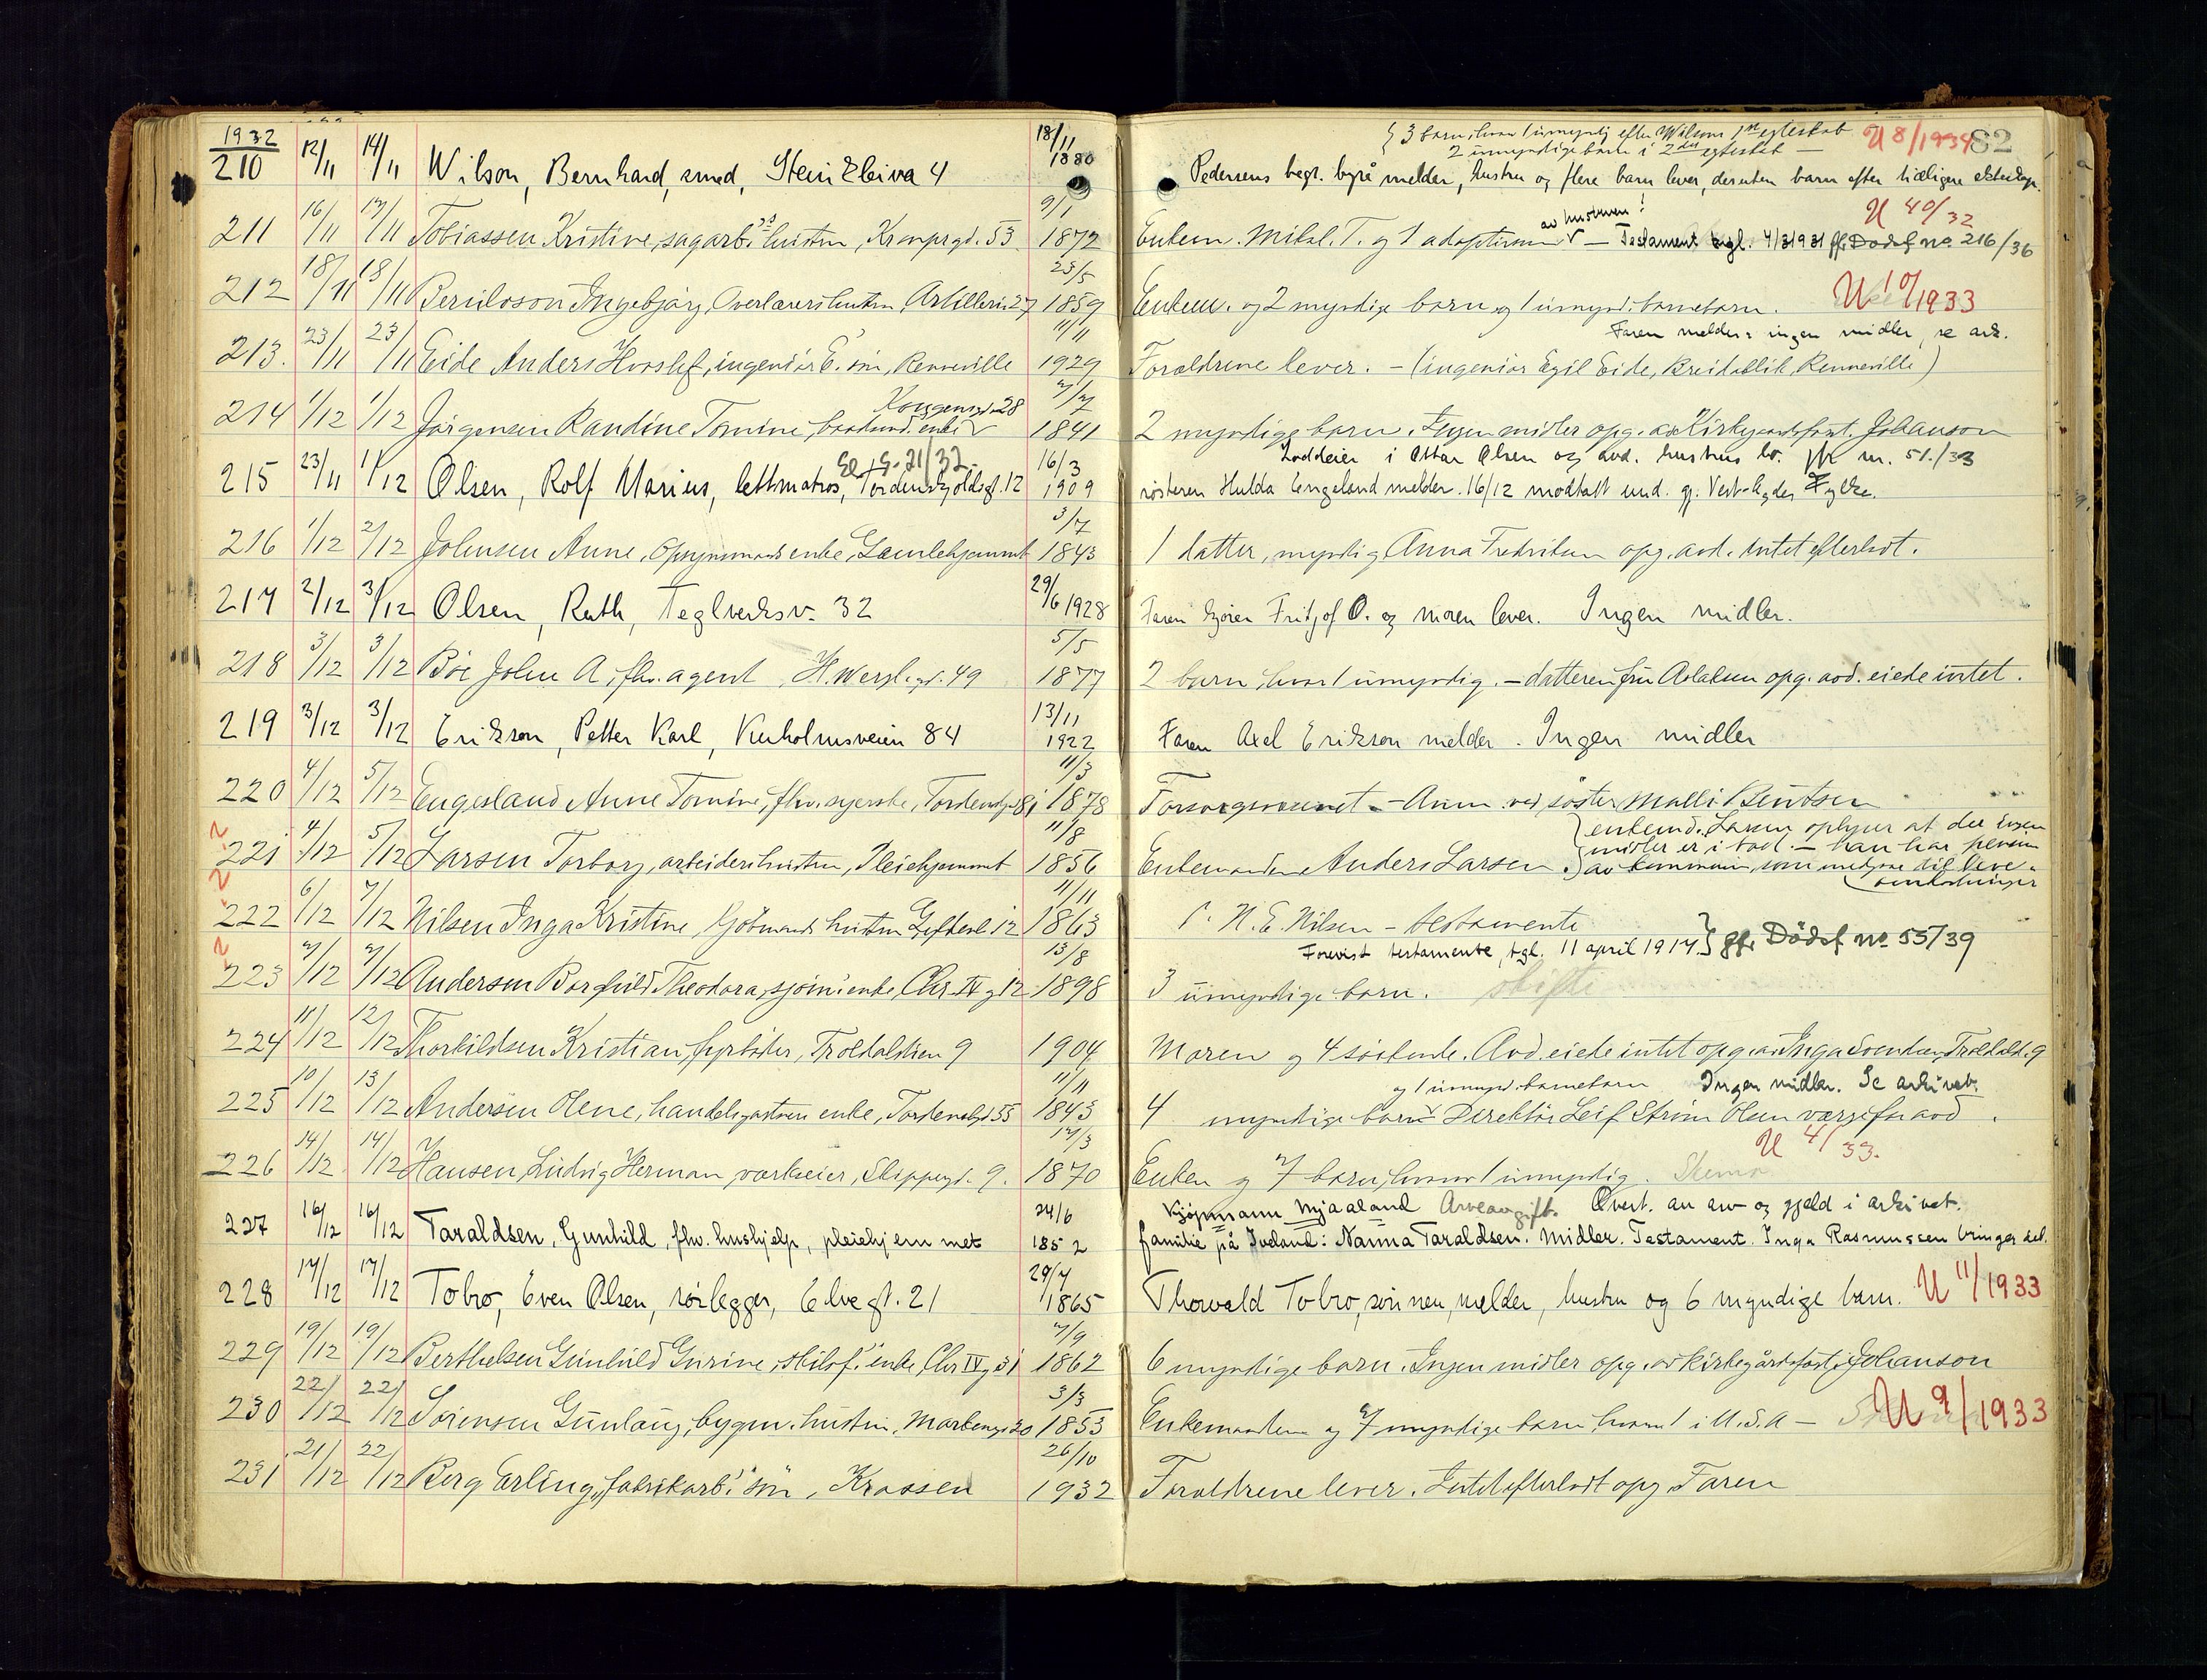 1932
210 12/11 14/11 Wilson, Bernhard, smed, Steinkleiva 4 18/11 1880
211 16/11 17/11 Tobiassen Kristine, sagarb.s hustru, Kronprgd. 53 9/1 1872
212 18/11 18/11 Ingebjørg, Overlærers hustru, Artilleriv. 27 25/5 1859
213. 23/11 23/11 Eide Anders Hvoslef, ingeniör E. sön, Renneville 11/11 1929
Kongensgd. 28
214 1/12 1/12 Jörgensen Randine Tomine, enke 7/7 1841
215 23/11 1/12 Olsen, Rolf Marius, lettmatros, Tordenskjoldsgt. 12 16/3 1909
216 1/12 2/12 Johnsen Anne, Opsynsmands enke, Gamlehjemmet 3/7 1843
217 2/12 3/12 Olsen, Ruth, Teglverksv. 32 29/6 1928
218 3/12 3/12 Böe John A, fhv. agent, H. Wergl. gd. 49 5/5 1877
219 3/12 3/12 Erikson, Petter Karl, Kuholmsveien 84 13/11 1922
220 4/12 5/12 Engesland Anne Tomine, fhv. syerske, 11/3 1878
221 4/12 5/12 Larsen Torborg, arbeiders hustru, Pleiehjemmet 11/8 1856
222 6/12 7/12 Nilsen Inga Kristine, hustru 12 11/11 1863
223 7/12 7/12 Andersen Borghild Theodora, sjöm. enke, Chr. IV g 12 13/8 1898
224 11/12 12/12 Thorkildsen Kristian, fyrböter, 9 1904
225 10/12 13/12 Andersen Olene, enke, Tordenskjgd 55 11/11 1843
226 14/12 14/12 Hansen, Ludvig Herman, verkseier, Skippergd. 9. 17/3 1870
227 16/12 16/12 Taraldsen, Gunhild, fhv. hushjelp, pleiehjemmet 24/6 1852
228 17/12 17/12 Tobro, Even Olsen, rörlegger, Elvegt. 21 29/7 1865
229 19/12 19/12 Berthelsen Gunhild Gurine, enke, Chr IV g 31 7/9 1862
230 22/12 22/12 Sörensen Gunlaug, bygm. hustru, Markensgd 20 3/3 1853
231 21/12 22/12 Berg Erling, fabrikarb.s sön, Krossen 26/10 1932
3 barn, hvor 1 umyndig efter Wilsons 1ste egteskab U 8/1934 82
2 umyndige barn i 2det egteskab —
Pedersens begr. byrå melder, hustru og flere barn lever, desuten barn efter tidligere ekteskap.
av hustruen! U 40/32
Enkem. Mikal. T. og 1 adoptivsønn — Testament tgl. 4/3 1931 jfr. Dødsf no. 216/36
Enkem. og 2 myndige barn og 1 umynd. barnebarn. U 10/1933
Faren melder: ingen midler, se ark.
Foreldrene lever. — (ingeniör Egil Eide, Breidablik, Renneville)
2 myndige barn. Ingen midler opg. av Kirkegårdsfogt. Johanson
Loddeier i Ottar Olsen og avd. hustrus bo. jfr nr. 51./33
søsteren Hulda Engeland melder. 16/12 modtatt und. gj. Vest-Agder Fylke.
1 datter, myndig Anna Fredriksen opg. avd. intet efterladt.
Faren kjører Fritjof O. og moren lever. Ingen midler.
2 barn, hvor 1 umyndig. — datteren fru opg. avd. eiede intet.
Faren Axel Erikson melder. Ingen midler
Forsorgsvesenet. — Anm. ved söster Malli Bentsen
enkem. Larsen oplyser at der ingen
midler er i bod — han har pension
Enkemanden Anders Larsen. av kommunen, som medgaar til leve-
omkostninger
N. E. Nilsen — testamente
Forevist testamente, tgl. 11 april 1917. jfr. Dödsf no 55/39
3 umyndige barn. skifte
Moren og 4 söskende. Avd. eiede intet opg. av Inga 9
og 1 umynd. barnebarn Ingen midler. Se arkivet.
4 myndige barn Direktör Leif Ström Olsen verge for avd.
U 4/33.
Enken og 7 barn, hvorav 1 umyndig. Skema
Kjøpmann Mjaaland Arveavgift. Overt. av arv og gjeld i arkivet.
familie på Iveland: Nanna Taraldsen. Midler. Testament. Inga Rasmussen bringer det.
Thorvald Tobro, sönnen, melder, hustru og 6 myndige barn. U 11/1933
6 myndige barn. Ingen midler opg. av kirkegårdsfogt. Johanson
Enkemanden og 7 myndige barn, hvorav 1 i U.S.A — U 9/1933
Foreldrene lever. Intet efterladt opg. Faren